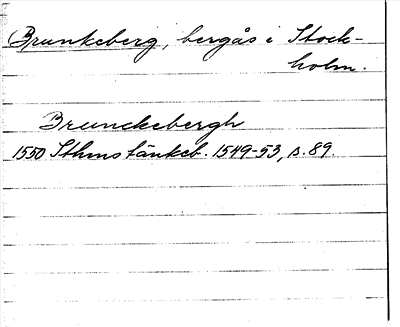 Brunkeberg, bergås i Stock-
holm.
Brunckebergh
1550 Sthms tänkeb. 1549-53, s. 89